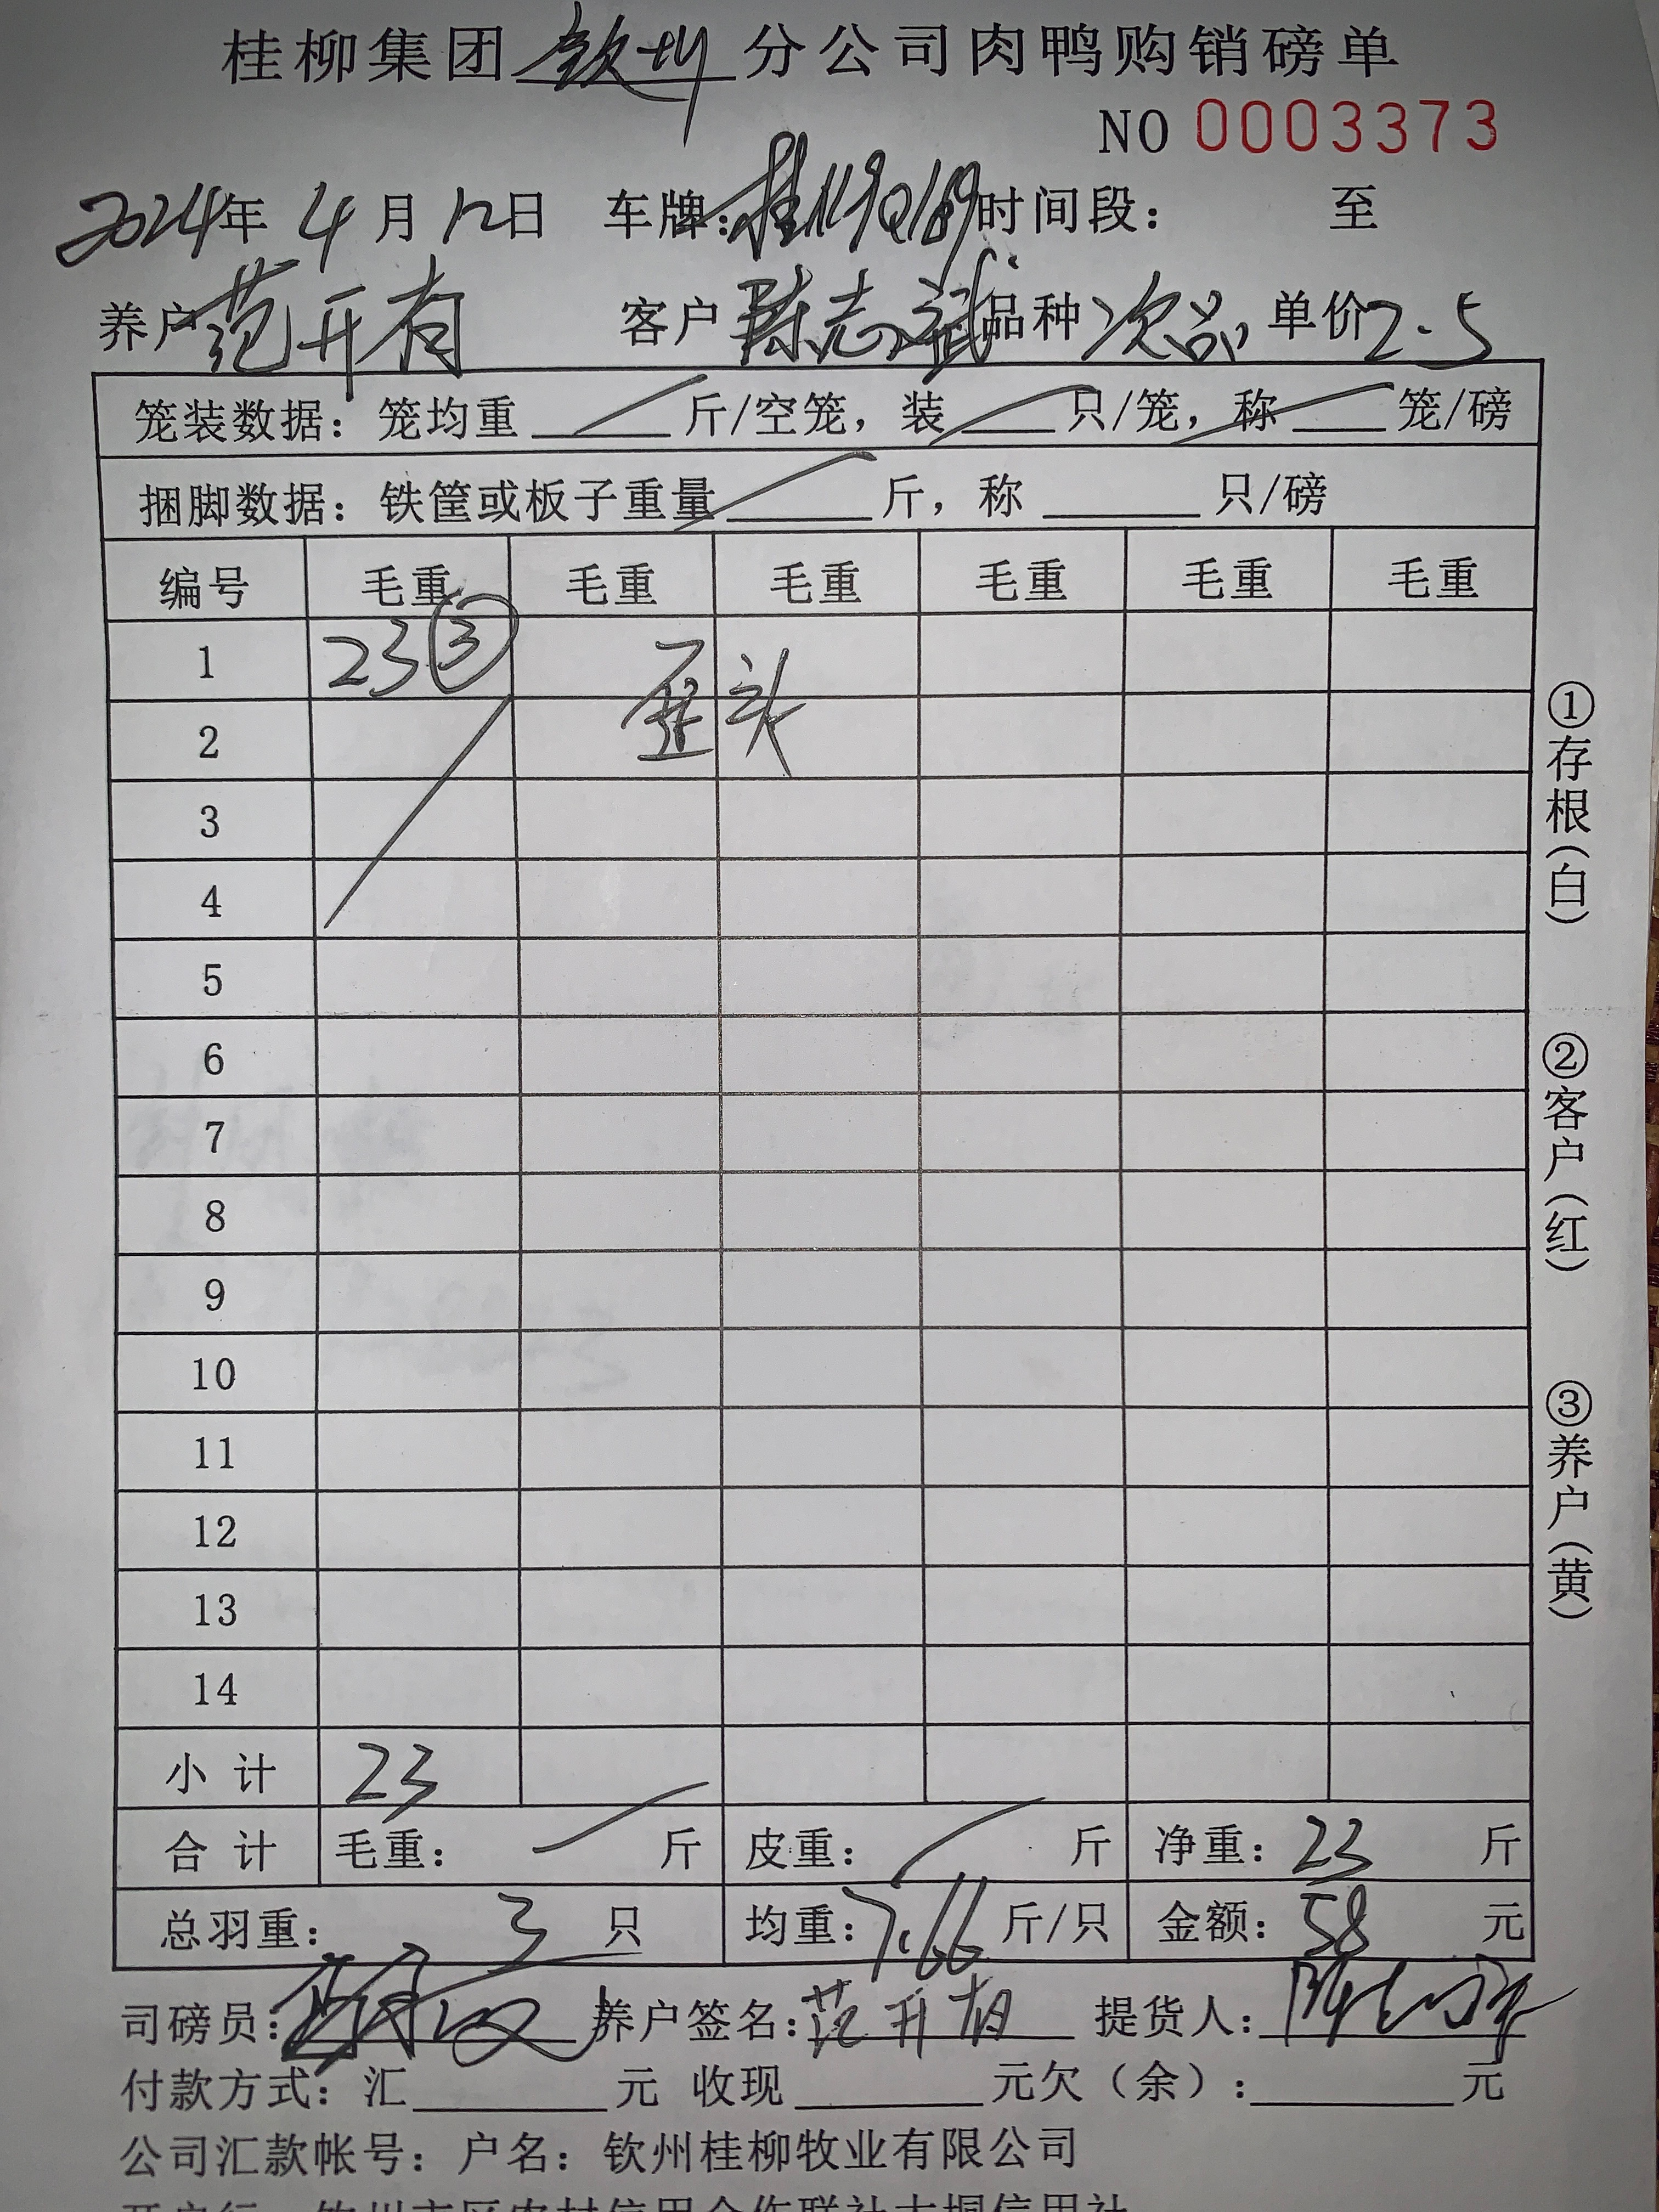 桂柳集团 钦州 分公司肉鸭购销磅单
NO 0003373
2024年 4月 12日 车牌: 时间段: 至
养户 范开有 客户 陈志斌 品种 次品 单价 2.5
笼装数据: 笼均重 斤/空笼, 装 只/笼, 称 笼/磅
捆脚数据: 铁筐或板子重量 斤, 称 只/磅
编号 毛重 毛重 毛重 毛重 毛重 毛重
1 23 ③
歪头
2
3
4
5
6
7
8
9
10
11
12
13
14
小计 23
合计 毛重: 斤 皮重: 斤 净重: 23 斤
总羽重: 3 只 均重: 7.66 斤/只 金额: 58 元
司磅员: 养户签名: 范开有 提货人:
付款方式: 汇 元 收现 元欠(余): 元
公司汇款帐号: 户名: 钦州桂柳牧业有限公司
①存根(白)
②客户(红)
③养户(黄)